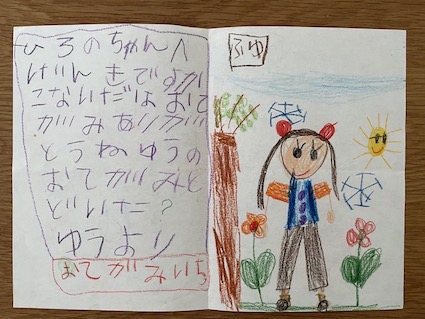 ひろのちゃんへ
げんきですか
こないだはおて
がみありが
とうねゆうの
おてがみと
どいた？
ゆうより
おてがみいち
ふゆ